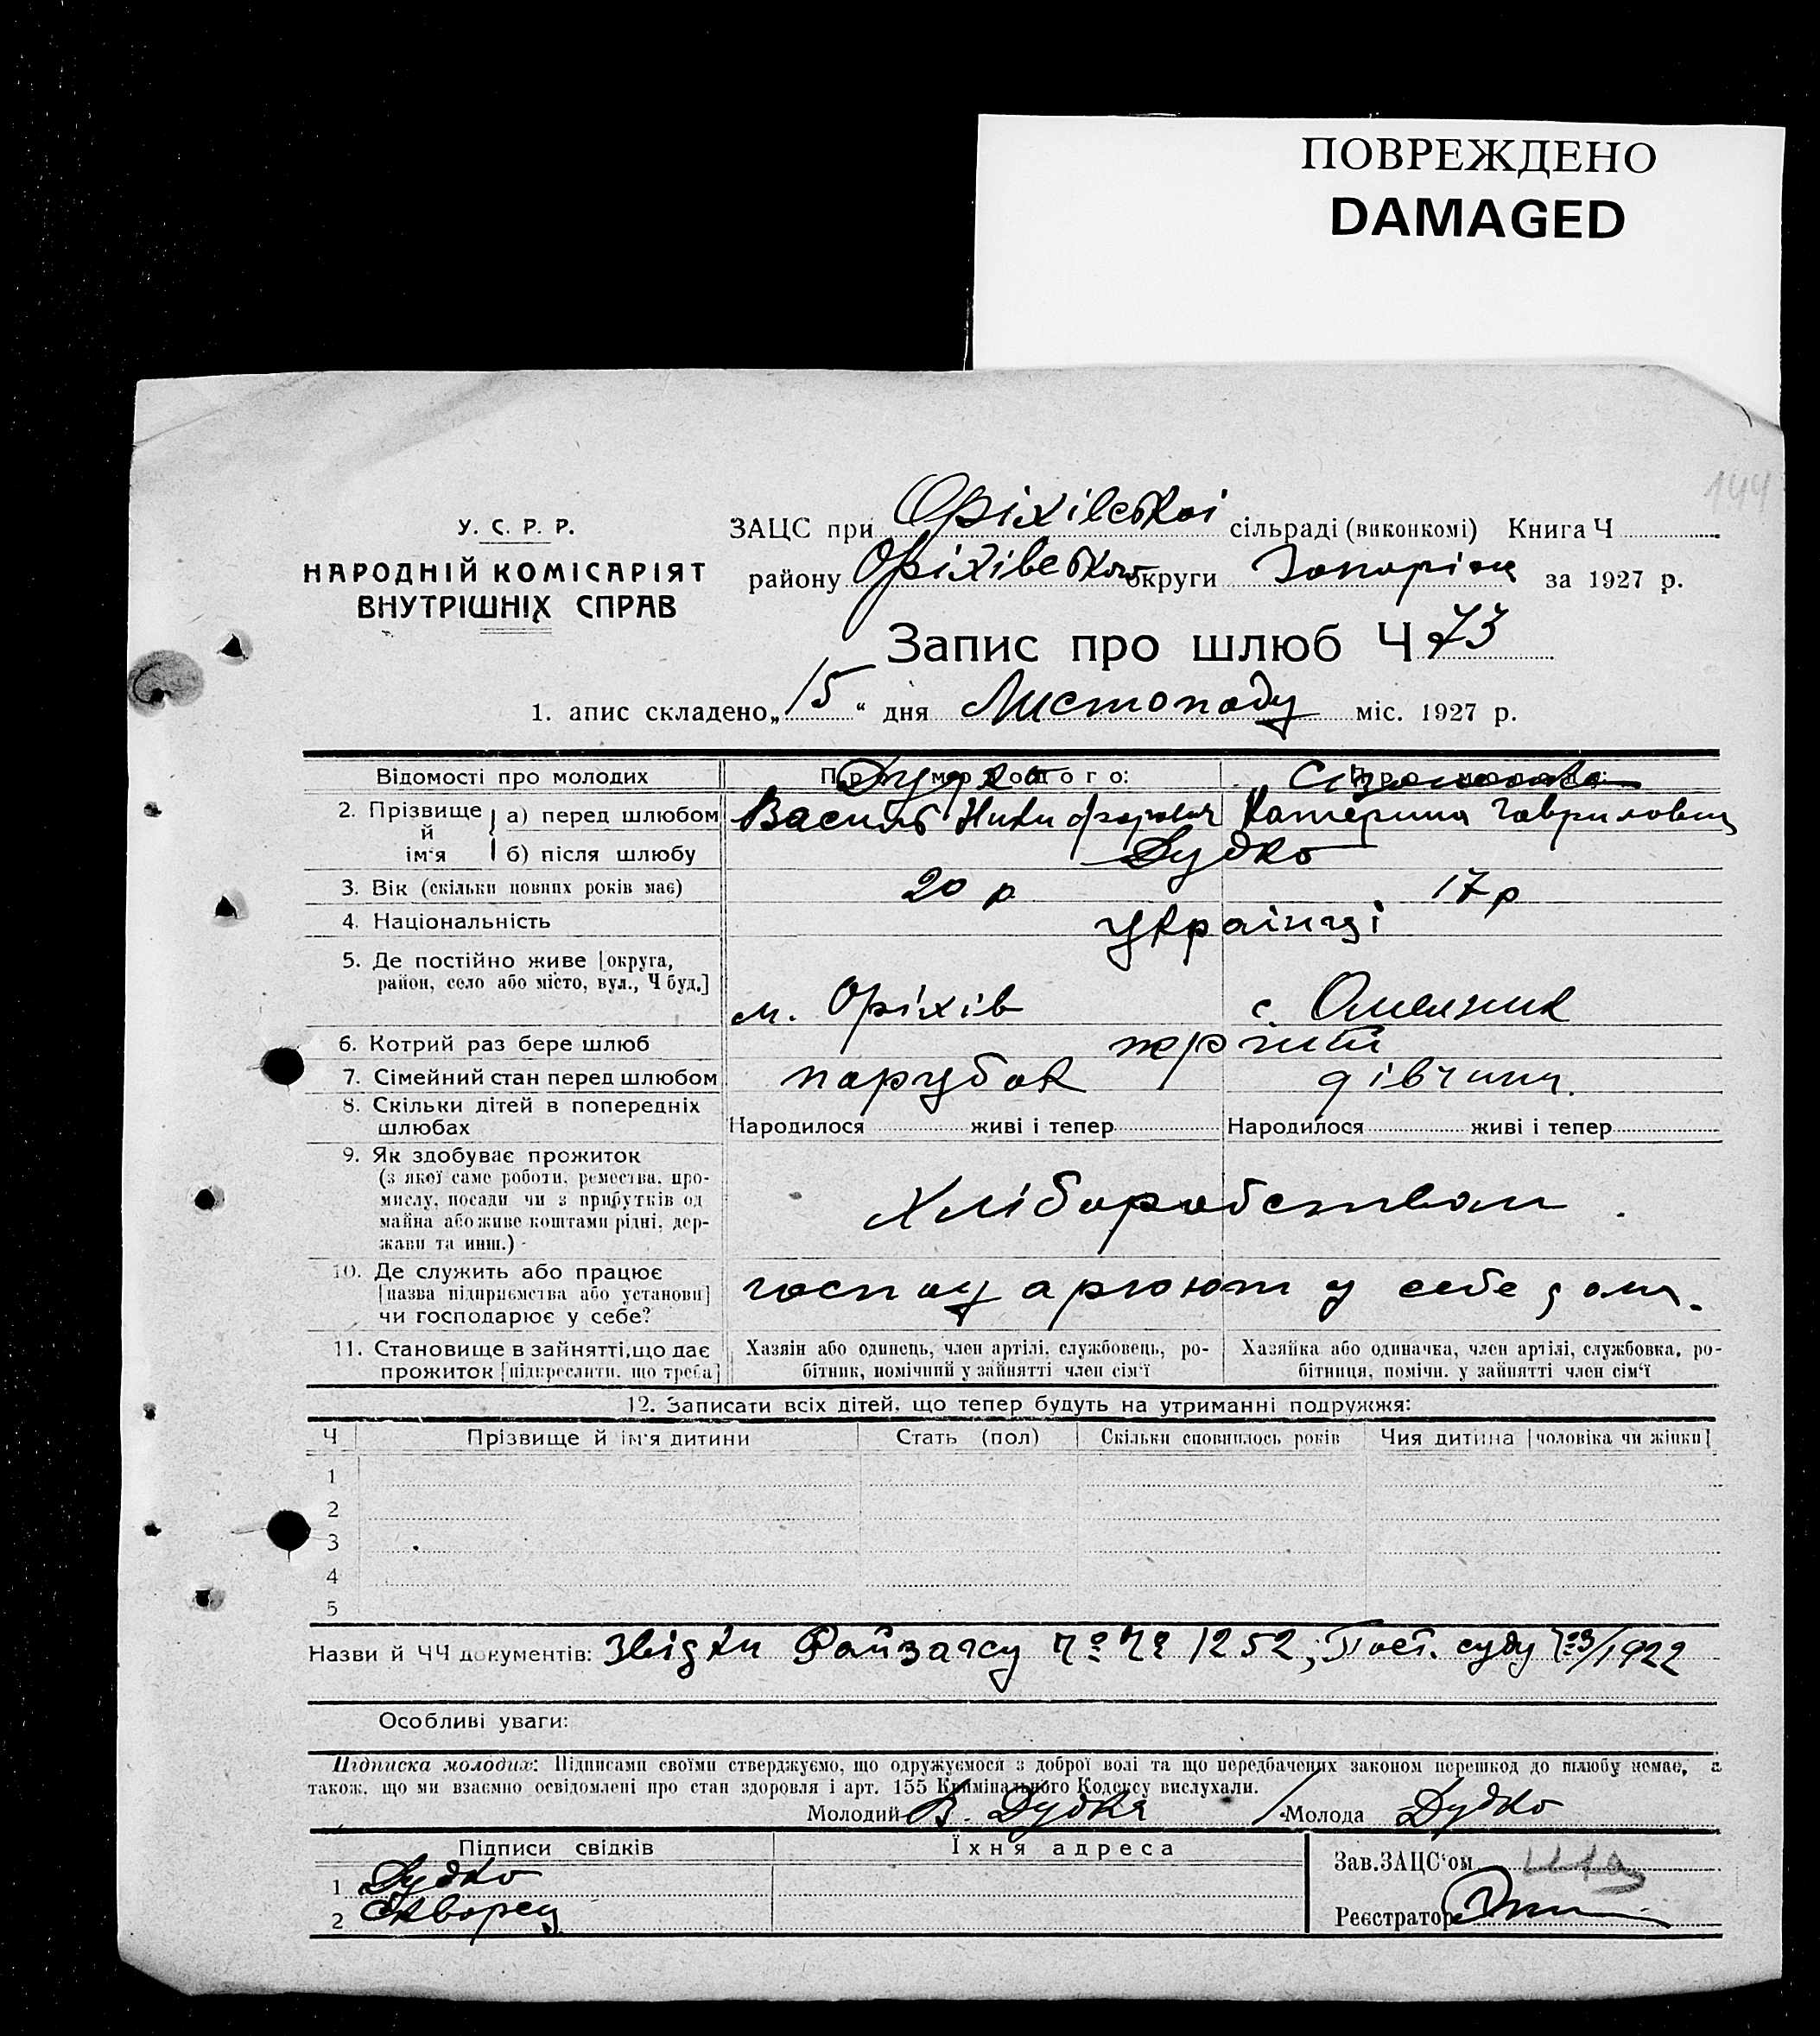 ПОВРЕЖДЕНО
DAMAGED
144
У. С. Р. Р.
НАРОДНІЙ КОМІСАРІЯТ
ВНУТРІШНІХ СПРАВ
ЗАЦС при Оріхівської сільраді (виконкомі) Книга Ч
району Оріхівського округи Запоріж за 1927 р.
Запис про шлюб Ч 73
1. апис складено „15“ дня Листопаду міс. 1927 р.
Відомості про молодих Про молодого: Про молоду:
2. Прізвище й ім'я
а) перед шлюбом Дудка Василь Никифорович Катерина Гавриловна
б) після шлюбу Дудко
3. Вік (скільки повних років має) 20 р 17 р
4. Національність українці
5. Де постійно живе [округа,
район, село або місто, вул., Ч буд.] м. Оріхів с. Омельник
6. Котрий раз бере шлюб перший
7. Сімейний стан перед шлюбом парубок дівчина.
8. Скільки дітей в попередніх
шлюбах Народилося живі і тепер Народилося живі і тепер
9. Як здобуває прожиток
(з якої саме роботи, ремества, про-
мислу, посади чи з прибутків од
майна або живе коштами рідні, дер-
жави та инш.) Хліборобством
10. Де служить або працює
[назва підприємства або установи]
чи господарює у себе? господарюют у себе дома.
11. Становище в зайнятті, що дає
прожиток [підкреслити, що треба]
Хазяїн або одинець, член артілі, службовець, ро-
бітник, помічний у зайнятті член сім'ї
Хазяйка або одиначка, член артілі, службовка, ро-
бітниця, помічн. у зайнятті член сім'ї
12. Записати всіх дітей, що тепер будуть на утриманні подружжя:
Ч Прізвище й ім'я дитини Стать (пол) Скільки сповнилось років Чия дитина [чоловіка чи жінки]
1
2
3
4
5
Назви й ЧЧ документів: Звідки Райзагсу 1252; Пост. суду 1922
Особливі уваги:
Підписка молодих: Підписами своїми стверджуємо, що одружуємося з доброї волі та що передбачених законом перешкод до шлюбу немає, а
також, що ми взаємно освідомлені про стан здоровля і арт. 155 Кримінального Кодексу вислухали.
Молодий В. Дудка Молода Дудко
Підписи свідків Їхня адреса
1 Дудко
2 Скворец
Зав. ЗАЦС'ом
Реєстратор